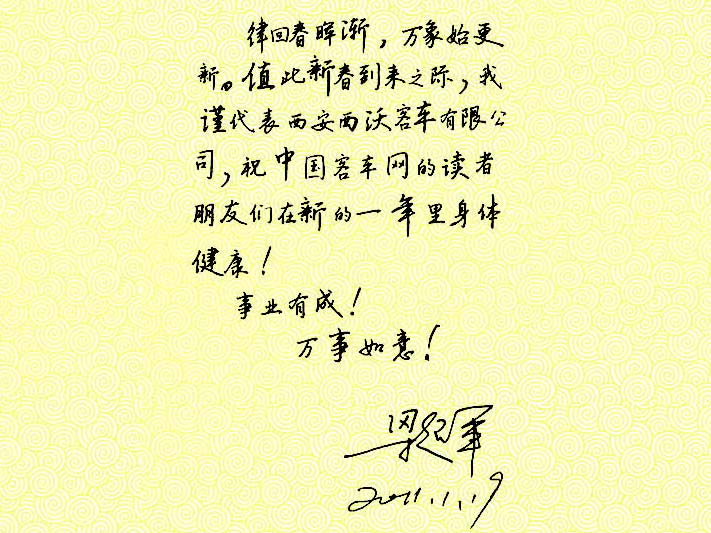 律回春晖渐，万象始更
新。值此新春到来之际，我
谨代表西安西沃客车有限公
司，祝中国客车网的读者
朋友们在新的一年里身体
健康！
事业有成！
万事如意！
2011.1.19